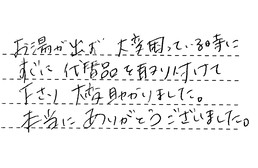 お湯が出ず 大変困っている時に
すぐに 代替品を取り付けて
下さり 大変助かりました。
本当に ありがとうございました。